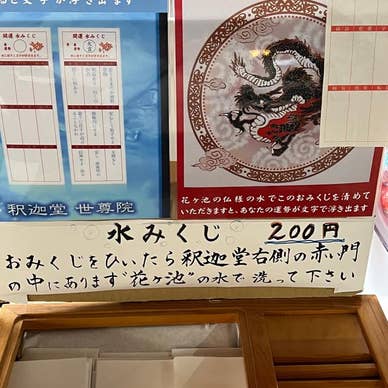 と文字が浮き出ます
開運 水みくじ
開運 水みくじ
釈迦堂 世尊院
花ヶ池の仏様の水でこのおみくじを清めて
いただきますと、あなたの運勢が文字で浮き出ます
水みくじ 200円
おみくじをひいたら釈迦堂右側の赤い門
の中にあります“花ヶ池”の水で洗って下さい